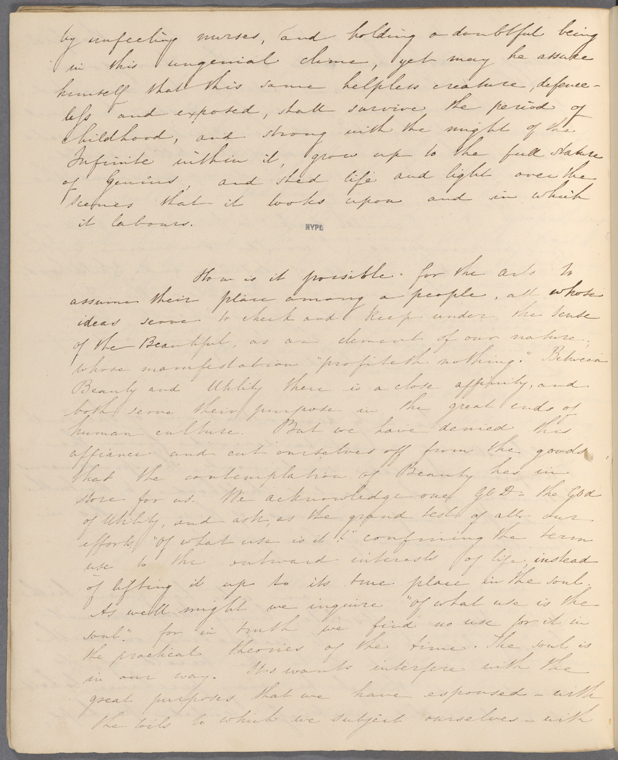 by unfeeling nurses, and holding a doubtful being
in this ungenial clime, yet may he assure
himself that this same helpless creature, defence-
less and exposed, shall survive the period of
childhood, and strong with the might of the
Infinite within it, grow up to the full stature
of Genius, and shed life and light over the
scenes that it looks upon and in which
it labours.
NYPL
How is it possible for the arts to
assume their place among a people, all whose
ideas serve to check and keep under the sense
of the Beautiful, as an element of our nature,
whose manifestation "profiteth nothing." Between
Beauty and Utility there is a close affinity, and
both serve their purpose in the great ends of
human culture. But we have denied this
affiance and cut ourselves off from the goods
that the contemplation of Beauty has in
store for us. We acknowledge our GOD the God
of Utility, and ask, as the grand test of all our
efforts, "of what use is it?" confining the term
use to the outward interests of life, instead
of lifting it up to its true place in the soul.
As well might we inquire "of what use is the
soul." for in truth we find no use for it in
the practical theories of the time. The soul is
in our way. Its wants interfere with the
great purposes that we have espoused – with
the toils to which we subject ourselves – with